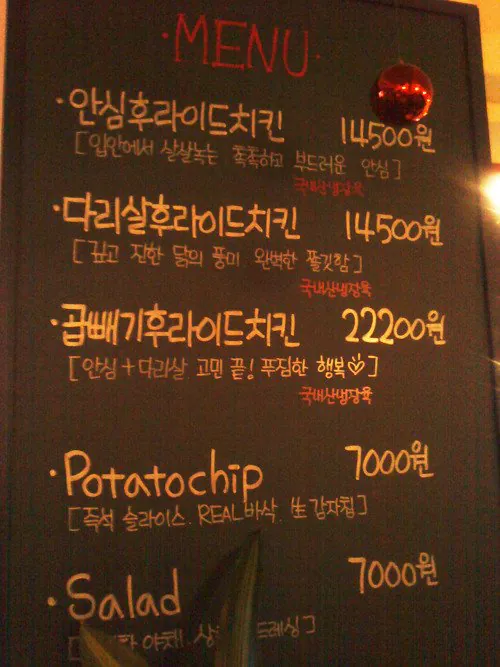 ·MENU·
·안심후라이드치킨 14500원
[입안에서 살살녹는 촉촉하고 부드러운 안심]
국내산냉장육
·다리살후라이드치킨 14500원
[깊고 진한 닭의 풍미 완벽한 쫄깃함]
국내산냉장육
·곱빼기후라이드치킨 22200원
[안심+다리살 고민 끝! 푸짐한 행복♡]
국내산냉장육
·Potatochip 7000원
[즉석 슬라이스. REAL바삭. 生감자칩]
·Salad 7000원
[ 야채. 드레싱]